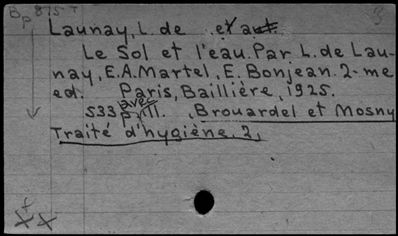 Bp 815 T
Launay, L. de et aut.
Le Sol et l'eau. Par L. de Lau-
nay, E.A. Martel, E. Bonjean. 2-me
ed. Paris, Baillière, 1925.
avec
533 p., ill. , Brouardel et Mosny
Traité d'hygiène. 2,